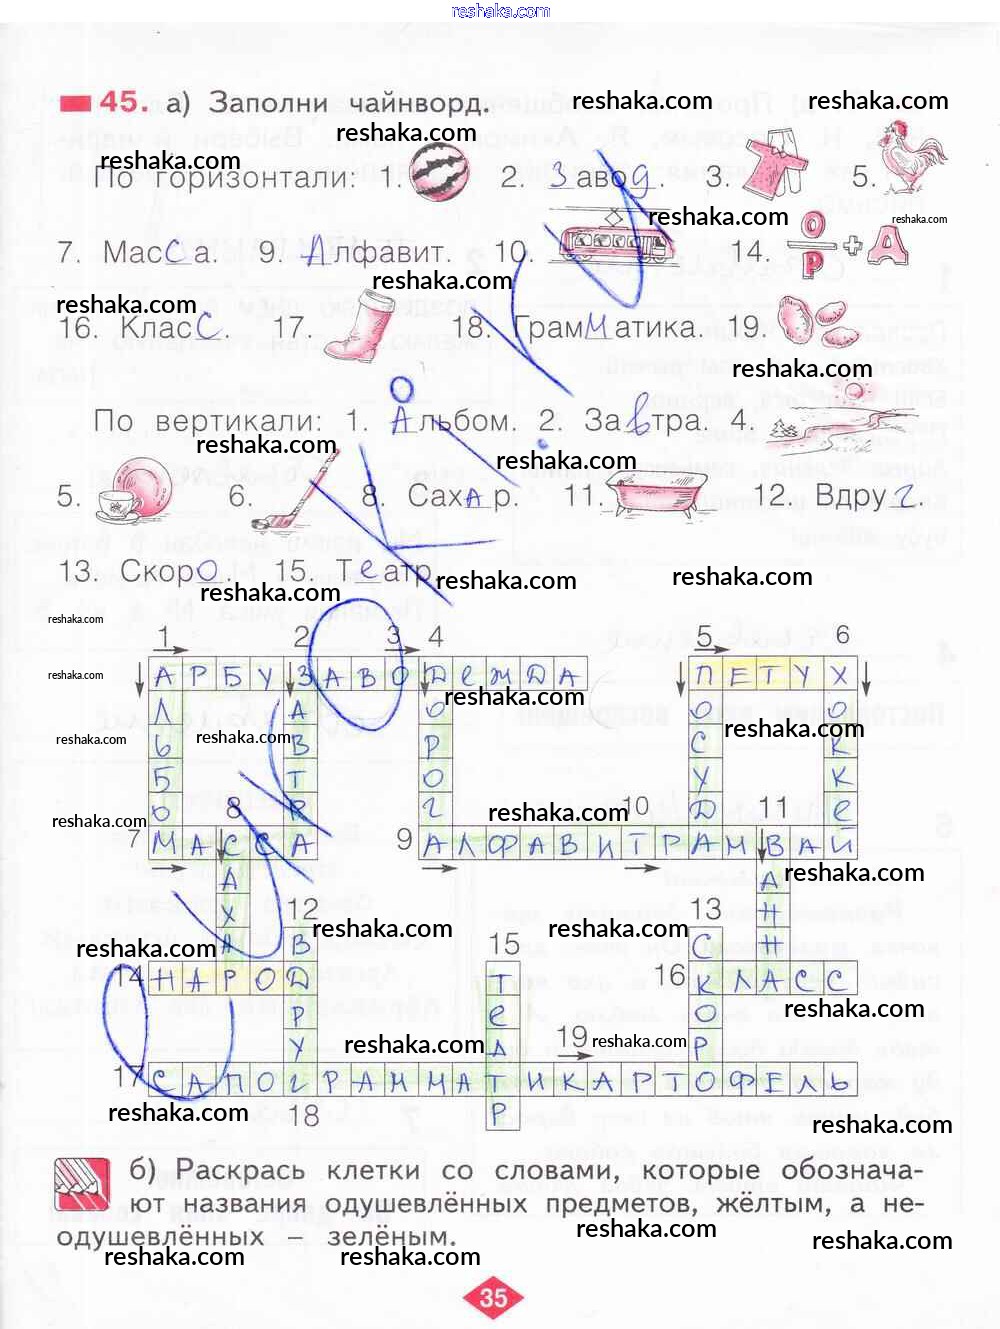 reshaka.com
45. а) Заполни чайнворд.
reshaka.com
reshaka.com
reshaka.com
reshaka.com
По горизонтали: 1. 2. Завод. 3. 5.
reshaka.com
reshaka.com
7. Масса. 9. Алфавит. 10. 14. О Р + А
reshaka.com
reshaka.com
16. Класс. 17. 18. Грамматика. 19.
reshaka.com
По вертикали: 1. Альбом. 2. Завтра. 4.
reshaka.com
reshaka.com
5. 6. 8. Сахар. 11. 12. Вдруг
13. Скоро. 15. Театр.
reshaka.com
reshaka.com
reshaka.com
reshaka.com
1 2 3 4 5 6
АРБУЗАВОДЕЖДА ПЕТУХ
reshaka.com
reshaka.com
Л А О О О
reshaka.com
reshaka.com
reshaka.com
Ь В Р С К
Б Т О У К
reshaka.com
reshaka.com
О 8 Р Г 10 Д 11 Е
7 МАССА 9 АЛФАВИТРАМВАЙ
А А
reshaka.com
Х 12 13 Н
reshaka.com
reshaka.com
reshaka.com
А В 15 С Н
14 НАРОД Т 16 КЛАСС
Р Е О
reshaka.com
reshaka.com
reshaka.com
У А 19 Р
17 САПОГРАММАТИКАРТОФЕЛЬ
18 Р
reshaka.com
reshaka.com
б) Раскрась клетки со словами, которые обознача-
ют названия одушевлённых предметов, жёлтым, а не-
одушевлённых – зелёным.
reshaka.com
reshaka.com
reshaka.com
reshaka.com
35